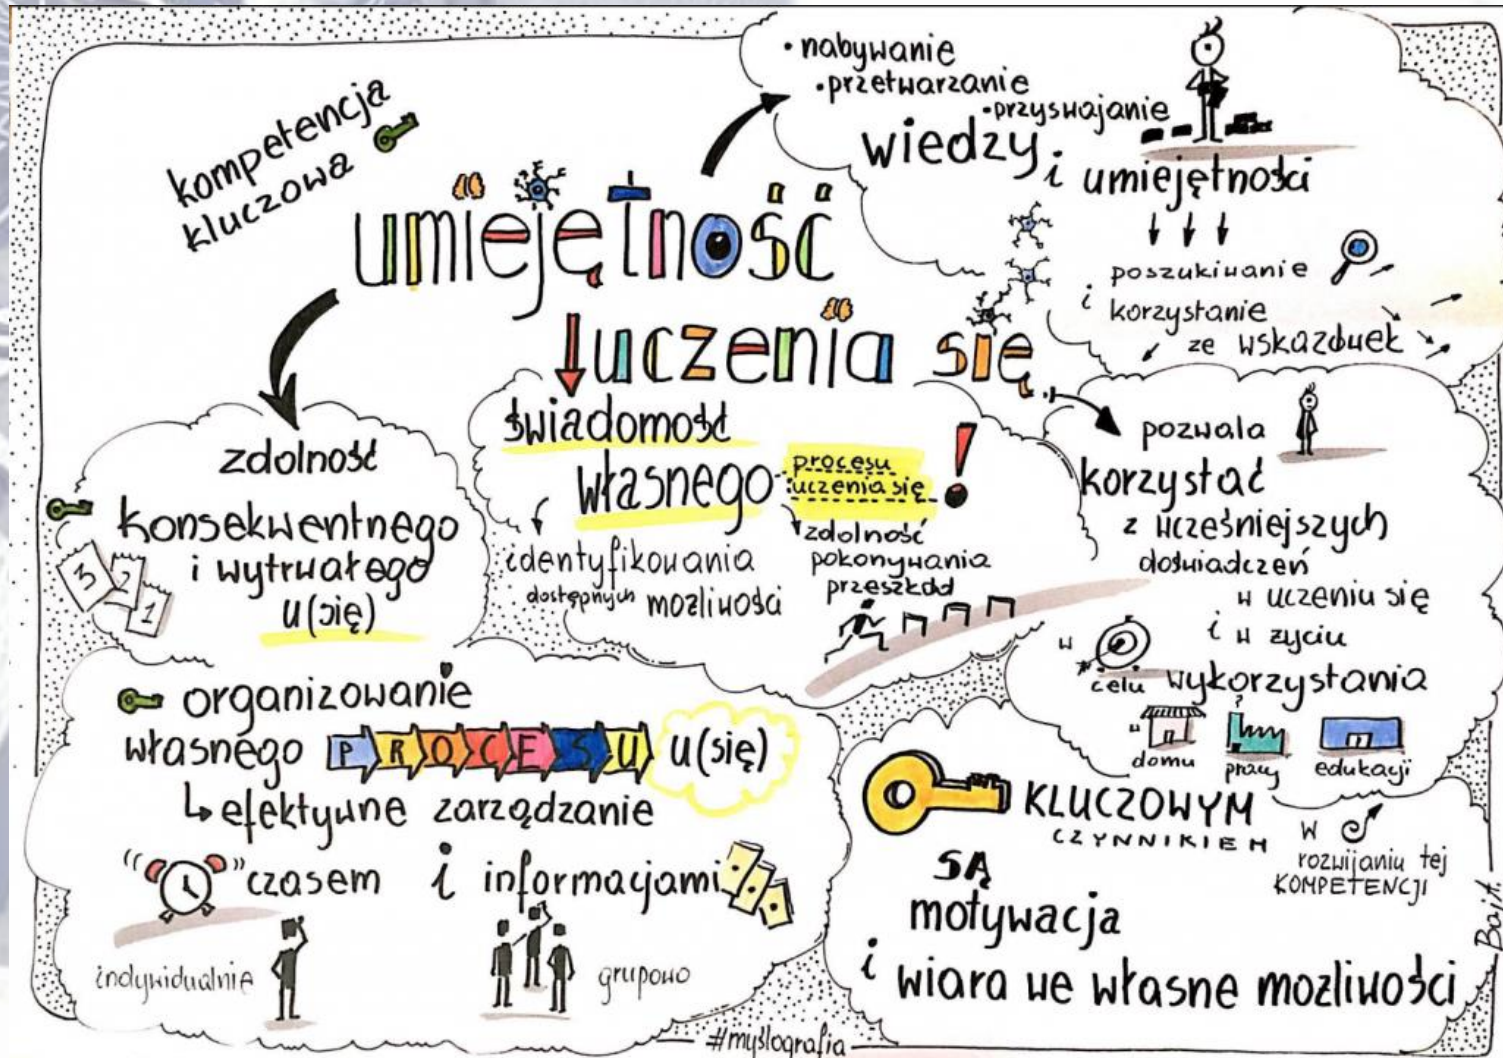 kompetencja
kluczowa
umiejętność
uczenia się
• nabywanie
• przetwarzanie
• przyswajanie
wiedzy
i umiejętności
poszukiwanie
i korzystanie
ze wskazówek
zdolność
konsekwentnego
i wytrwałego
u(się)
3 2 1
świadomość
własnego procesu
uczenia się !
identyfikowania
dostępnych możliwości
zdolność
pokonywania
przeszkód
pozwala
korzystać
z wcześniejszych
doświadczeń
w uczeniu się
i w życiu
w celu wykorzystania
w domu
?
pracy
edukacji
organizowanie
własnego PROCESU u(się)
efektywne zarządzanie
czasem i informacjami
indywidualnie
grupowo
KLUCZOWYM
CZYNNIKIEM
W
rozwijaniu tej
KOMPETENCJI
SĄ
motywacja
i wiara we własne możliwości
#myślografia